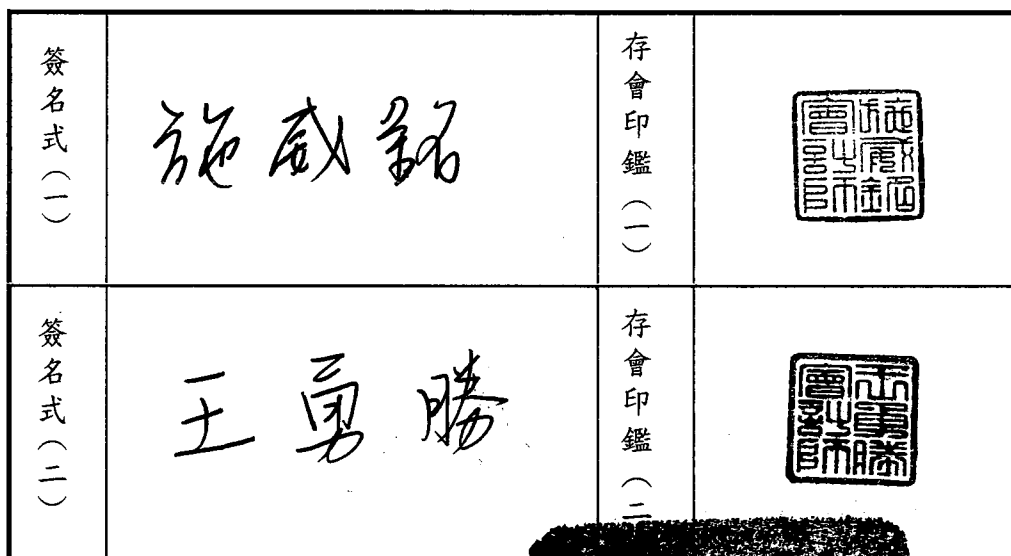 簽名式（一）
施威銘
存會印鑑（一）
施威銘
會計師
簽名式（二）
王勇勝
存會印鑑（二
王勇勝
會計師